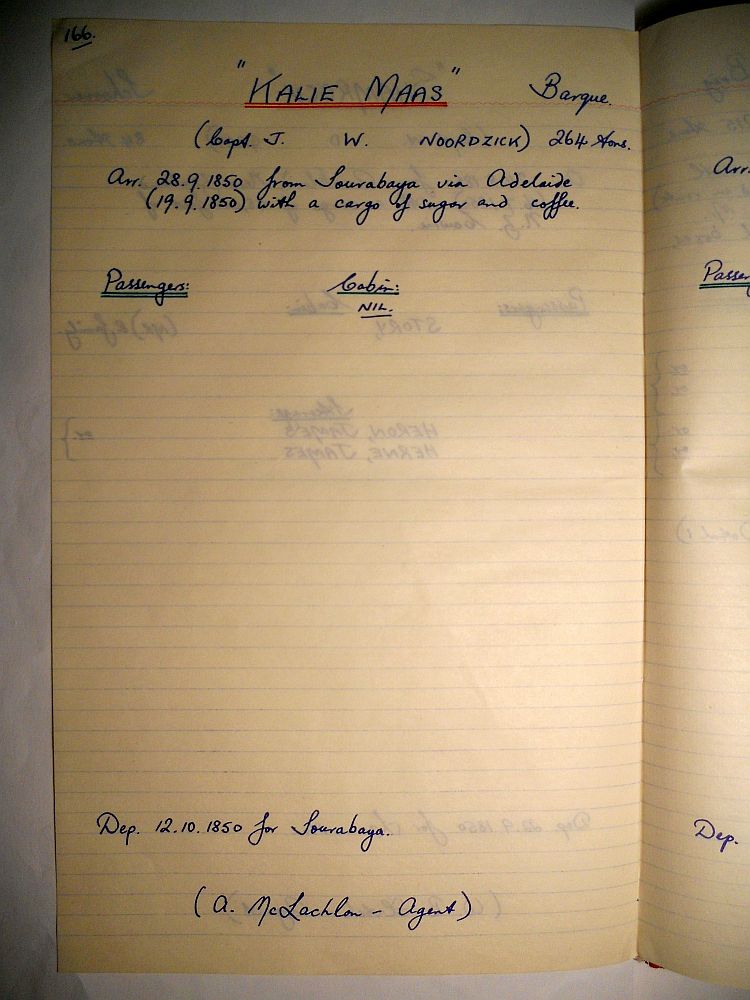 166.
"KALIE MAAS" Barque.
(Capt. J. W. NOORDZICK) 264 tons.
Arr. 28.9.1850 from Sourabaya via Adelaide
(19.9.1850) with a cargo of sugar and coffee.
Passengers: Cabin:
NIL.
Dep. 12.10.1850 for Sourabaya.
(A. McLachlan - Agent)
Arr.
Passen
Dep.